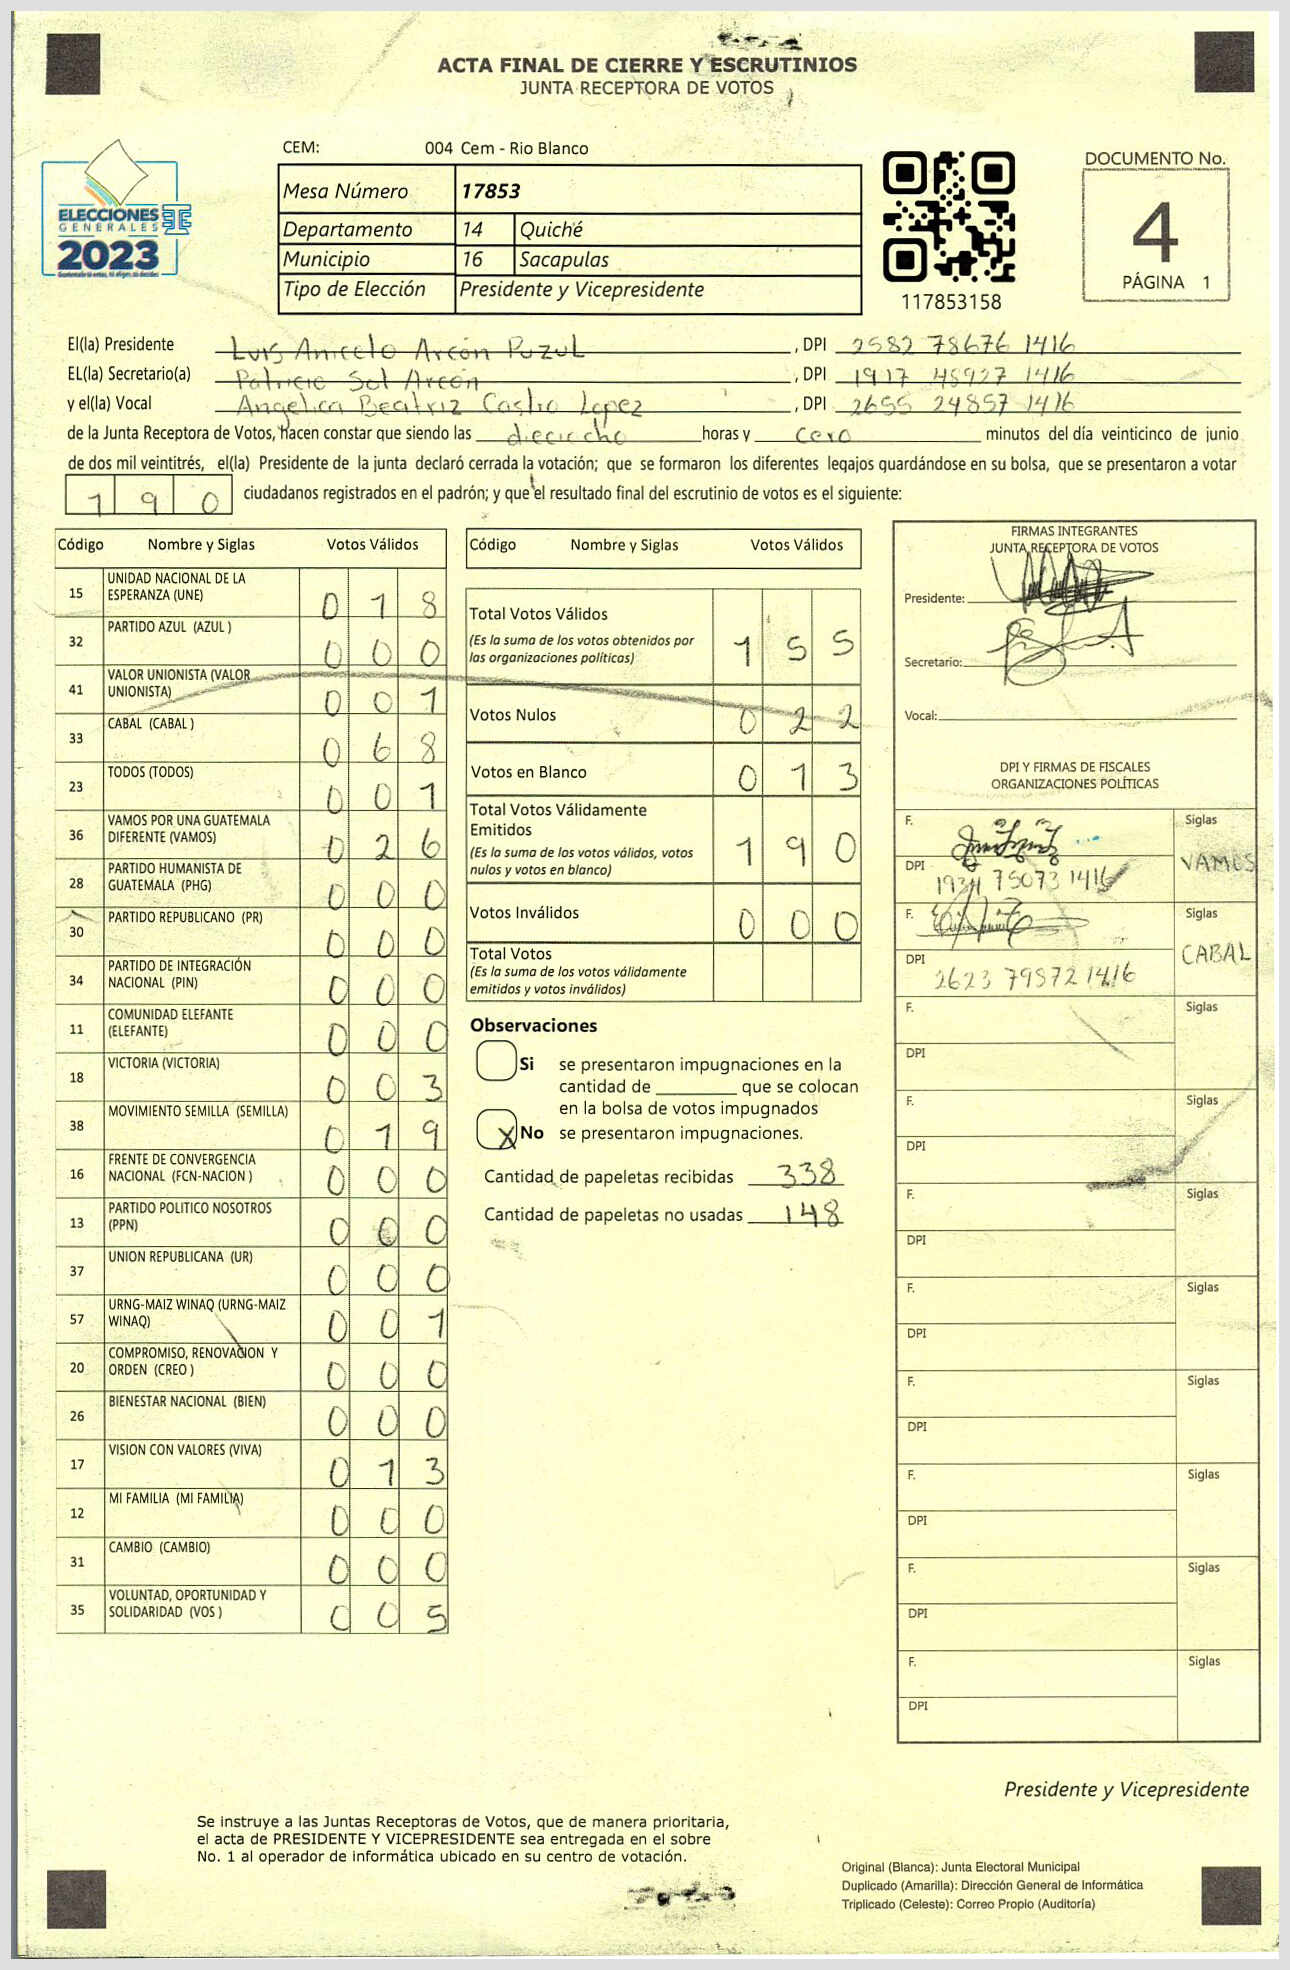 ACTA FINAL DE CIERRE Y ESCRUTINIOS
JUNTA RECEPTORA DE VOTOS
ELECCIONES
GENERALES
2023
CEM: 004 Cem - Rio Blanco
Mesa Número 17853
Departamento 14 Quiché
Municipio 16 Sacapulas
Tipo de Elección Presidente y Vicepresidente
117853158
DOCUMENTO No.
4
PÁGINA 1
El(la) Presidente Luis Aniceto Arcón Puzul, DPI 2582 78676 1416
EL(la) Secretario(a) Patricio Sol Arcón, DPI 1917 45927 1416
y el(la) Vocal Angelica Beatriz Castro Lopez, DPI 2655 24857 1416
de la Junta Receptora de Votos, hacen constar que siendo las dieciocho horas y cero minutos del día veinticinco de junio
de dos mil veintitrés, el(la) Presidente de la junta declaró cerrada la votación; que se formaron los diferentes legajos guardándose en su bolsa, que se presentaron a votar
190 ciudadanos registrados en el padrón; y que el resultado final del escrutinio de votos es el siguiente:
Código Nombre y Siglas Votos Válidos
15 UNIDAD NACIONAL DE LA ESPERANZA (UNE) 0 1 8
32 PARTIDO AZUL (AZUL ) 0 0 0
41 VALOR UNIONISTA (VALOR UNIONISTA) 0 0 1
33 CABAL (CABAL ) 0 6 8
23 TODOS (TODOS) 0 0 1
36 VAMOS POR UNA GUATEMALA DIFERENTE (VAMOS) 0 2 6
28 PARTIDO HUMANISTA DE GUATEMALA (PHG) 0 0 0
30 PARTIDO REPUBLICANO (PR) 0 0 0
34 PARTIDO DE INTEGRACIÓN NACIONAL (PIN) 0 0 0
11 COMUNIDAD ELEFANTE (ELEFANTE) 0 0 0
18 VICTORIA (VICTORIA) 0 0 3
38 MOVIMIENTO SEMILLA (SEMILLA) 0 1 9
16 FRENTE DE CONVERGENCIA NACIONAL (FCN-NACION ) 0 0 0
13 PARTIDO POLITICO NOSOTROS (PPN) 0 0 0
37 UNION REPUBLICANA (UR) 0 0 0
57 URNG-MAIZ WINAQ (URNG-MAIZ WINAQ) 0 0 1
20 COMPROMISO, RENOVACION Y ORDEN (CREO ) 0 0 0
26 BIENESTAR NACIONAL (BIEN) 0 0 0
17 VISION CON VALORES (VIVA) 0 1 3
12 MI FAMILIA (MI FAMILIA) 0 0 0
31 CAMBIO (CAMBIO) 0 0 0
35 VOLUNTAD, OPORTUNIDAD Y SOLIDARIDAD (VOS ) 0 0 5
Código Nombre y Siglas Votos Válidos
Total Votos Válidos 1 5 5
(Es la suma de los votos obtenidos por
las organizaciones políticas)
Votos Nulos 0 2 2
Votos en Blanco 0 1 3
Total Votos Válidamente
Emitidos 1 9 0
(Es la suma de los votos válidos, votos
nulos y votos en blanco)
Votos Inválidos 0 0 0
Total Votos
(Es la suma de los votos válidamente
emitidos y votos inválidos)
Observaciones
Si se presentaron impugnaciones en la
cantidad de ________ que se colocan
en la bolsa de votos impugnados
X No se presentaron impugnaciones.
Cantidad de papeletas recibidas 338
Cantidad de papeletas no usadas 148
FIRMAS INTEGRANTES
JUNTA RECEPTORA DE VOTOS
Presidente:
Secretario:
Vocal:
DPI Y FIRMAS DE FISCALES
ORGANIZACIONES POLÍTICAS
F. Siglas
DPI 1934 75073 1416 VAMOS
F. Siglas
DPI 2623 79872 1416 CABAL
F. Siglas
DPI
F. Siglas
DPI
F. Siglas
DPI
F. Siglas
DPI
F. Siglas
DPI
F. Siglas
DPI
F. Siglas
DPI
F. Siglas
DPI
Presidente y Vicepresidente
Se instruye a las Juntas Receptoras de Votos, que de manera prioritaria,
el acta de PRESIDENTE Y VICEPRESIDENTE sea entregada en el sobre
No. 1 al operador de informática ubicado en su centro de votación.
Original (Blanca): Junta Electoral Municipal
Duplicado (Amarilla): Dirección General de Informática
Triplicado (Celeste): Correo Propio (Auditoría)